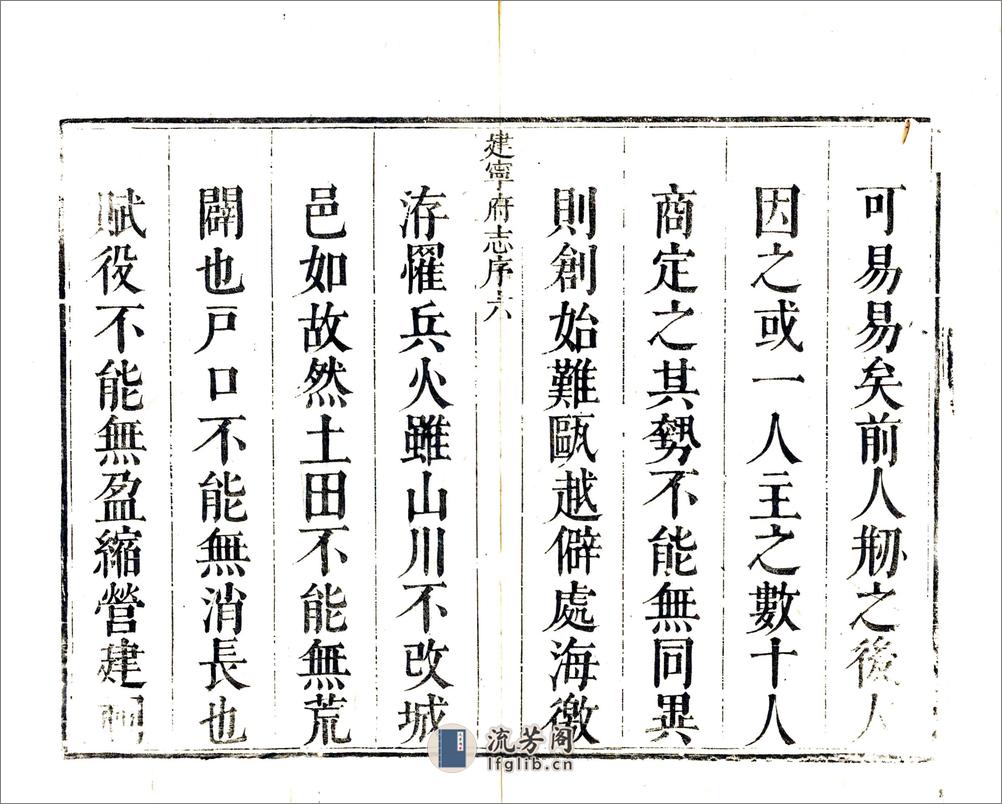 可易易矣前人刱之後人
因之或一人主之數十人
商定之其勢不能無同異
則創始難甌越僻處海徼
建寧府志序六
洊懼兵火雖山川不改城
邑如故然土田不能無荒
闢也戸口不能無消長也
賦役不能無盈縮營建
流芳阁
lfglib.cn